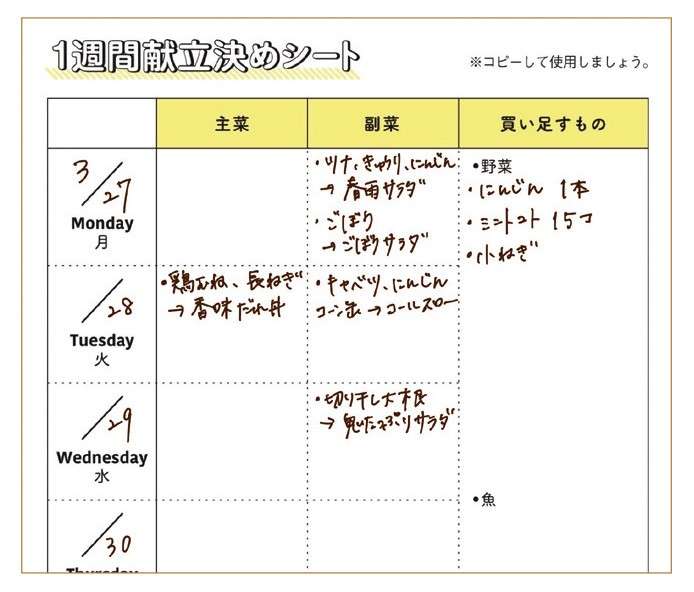 1週間献立決めシート
※コピーして使用しましょう。
主菜 副菜 買い足すもの
3/27
Monday
月
・ツナ、きゅうり、にんじん
→ 春雨サラダ
・ごぼう
→ ごぼうサラダ
•野菜
・にんじん 1本
・ミニトマト 15コ
・小ねぎ
/28
Tuesday
火
・鶏むね、長ねぎ
→ 香味だれ丼
・キャベツ、にんじん
コーン缶 → コールスロー
/29
Wednesday
水
・切り干し大根
→ サラダ
•魚
/30
Thursday